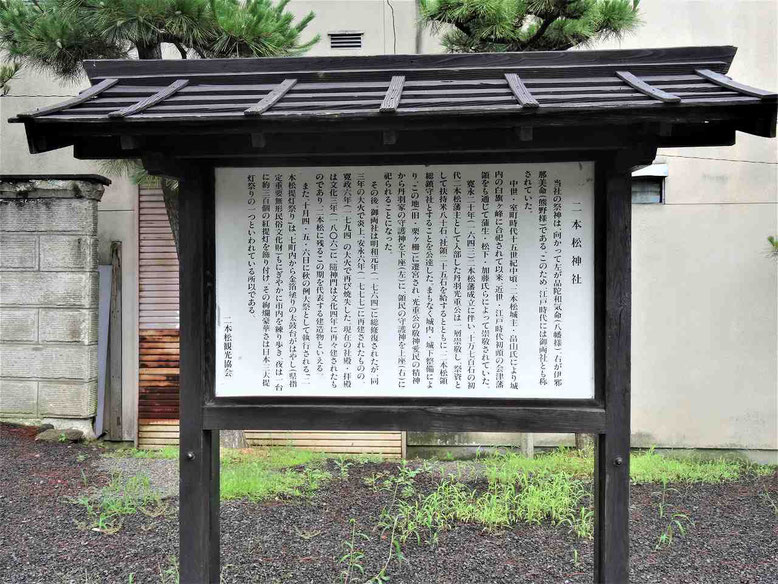 二本松神社
当社の祭神は、向かって左が品陀和気命（八幡様）、右が伊邪
那美命（熊野様）である。このため、江戸時代には御両社とも称
されていた。
中世・室町時代十五世紀中頃、二本松城主・畠山氏により城
内の白旗ヶ峰に合祀されて以来、近世・江戸時代初頭の会津藩
領をも通じて蒲生・松下・加藤氏らによって崇敬されていた。
寛永二十年（一六四三）二本松藩成立に伴い、十万七百石の初
代二本松藩主として入部した丹羽光重公は、一層崇敬し、祭資と
して扶持米八十石、社領二十五石を給するとともに、二本松領
総鎮守社とすることを公達した。まもなく城内、城下整備によ
り、この地（旧・栗ヶ柵）に遷宮され、光重公の敬神愛民の精神
から丹羽家の守護神を下座（左）に、領民の守護神を上座（右）に
祀られることになった。
その後、御両社は明和元年（一七六四）に総修復されたが、同
三年の大火で炎上、安永六年（一七七七）に再建されたものの、
寛政六年（一七九四）の大火で再び焼失した。現在の社殿・拝殿
は文化三年（一八〇六）に、随神門は文化四年に再々建されたも
のであり、二本松に残るこの期を代表する建造物といえる。
また、十月四・五・六日に秋の例大祭として執行される「二
本松提灯祭り」は、七町内から金箔塗りの太鼓台がはやし（県指
定重要無形民俗文化財）もにぎやかに市内を練り歩き、夜は一台
に約三百個の紅提灯を飾り付け、その絢爛豪華さは日本三大提
灯祭りの一つといわれている所以である。
二本松観光協会